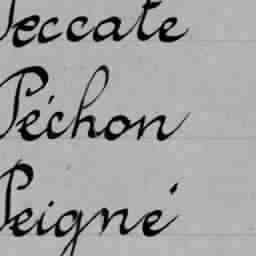 Peccate
Péchon
Peigné